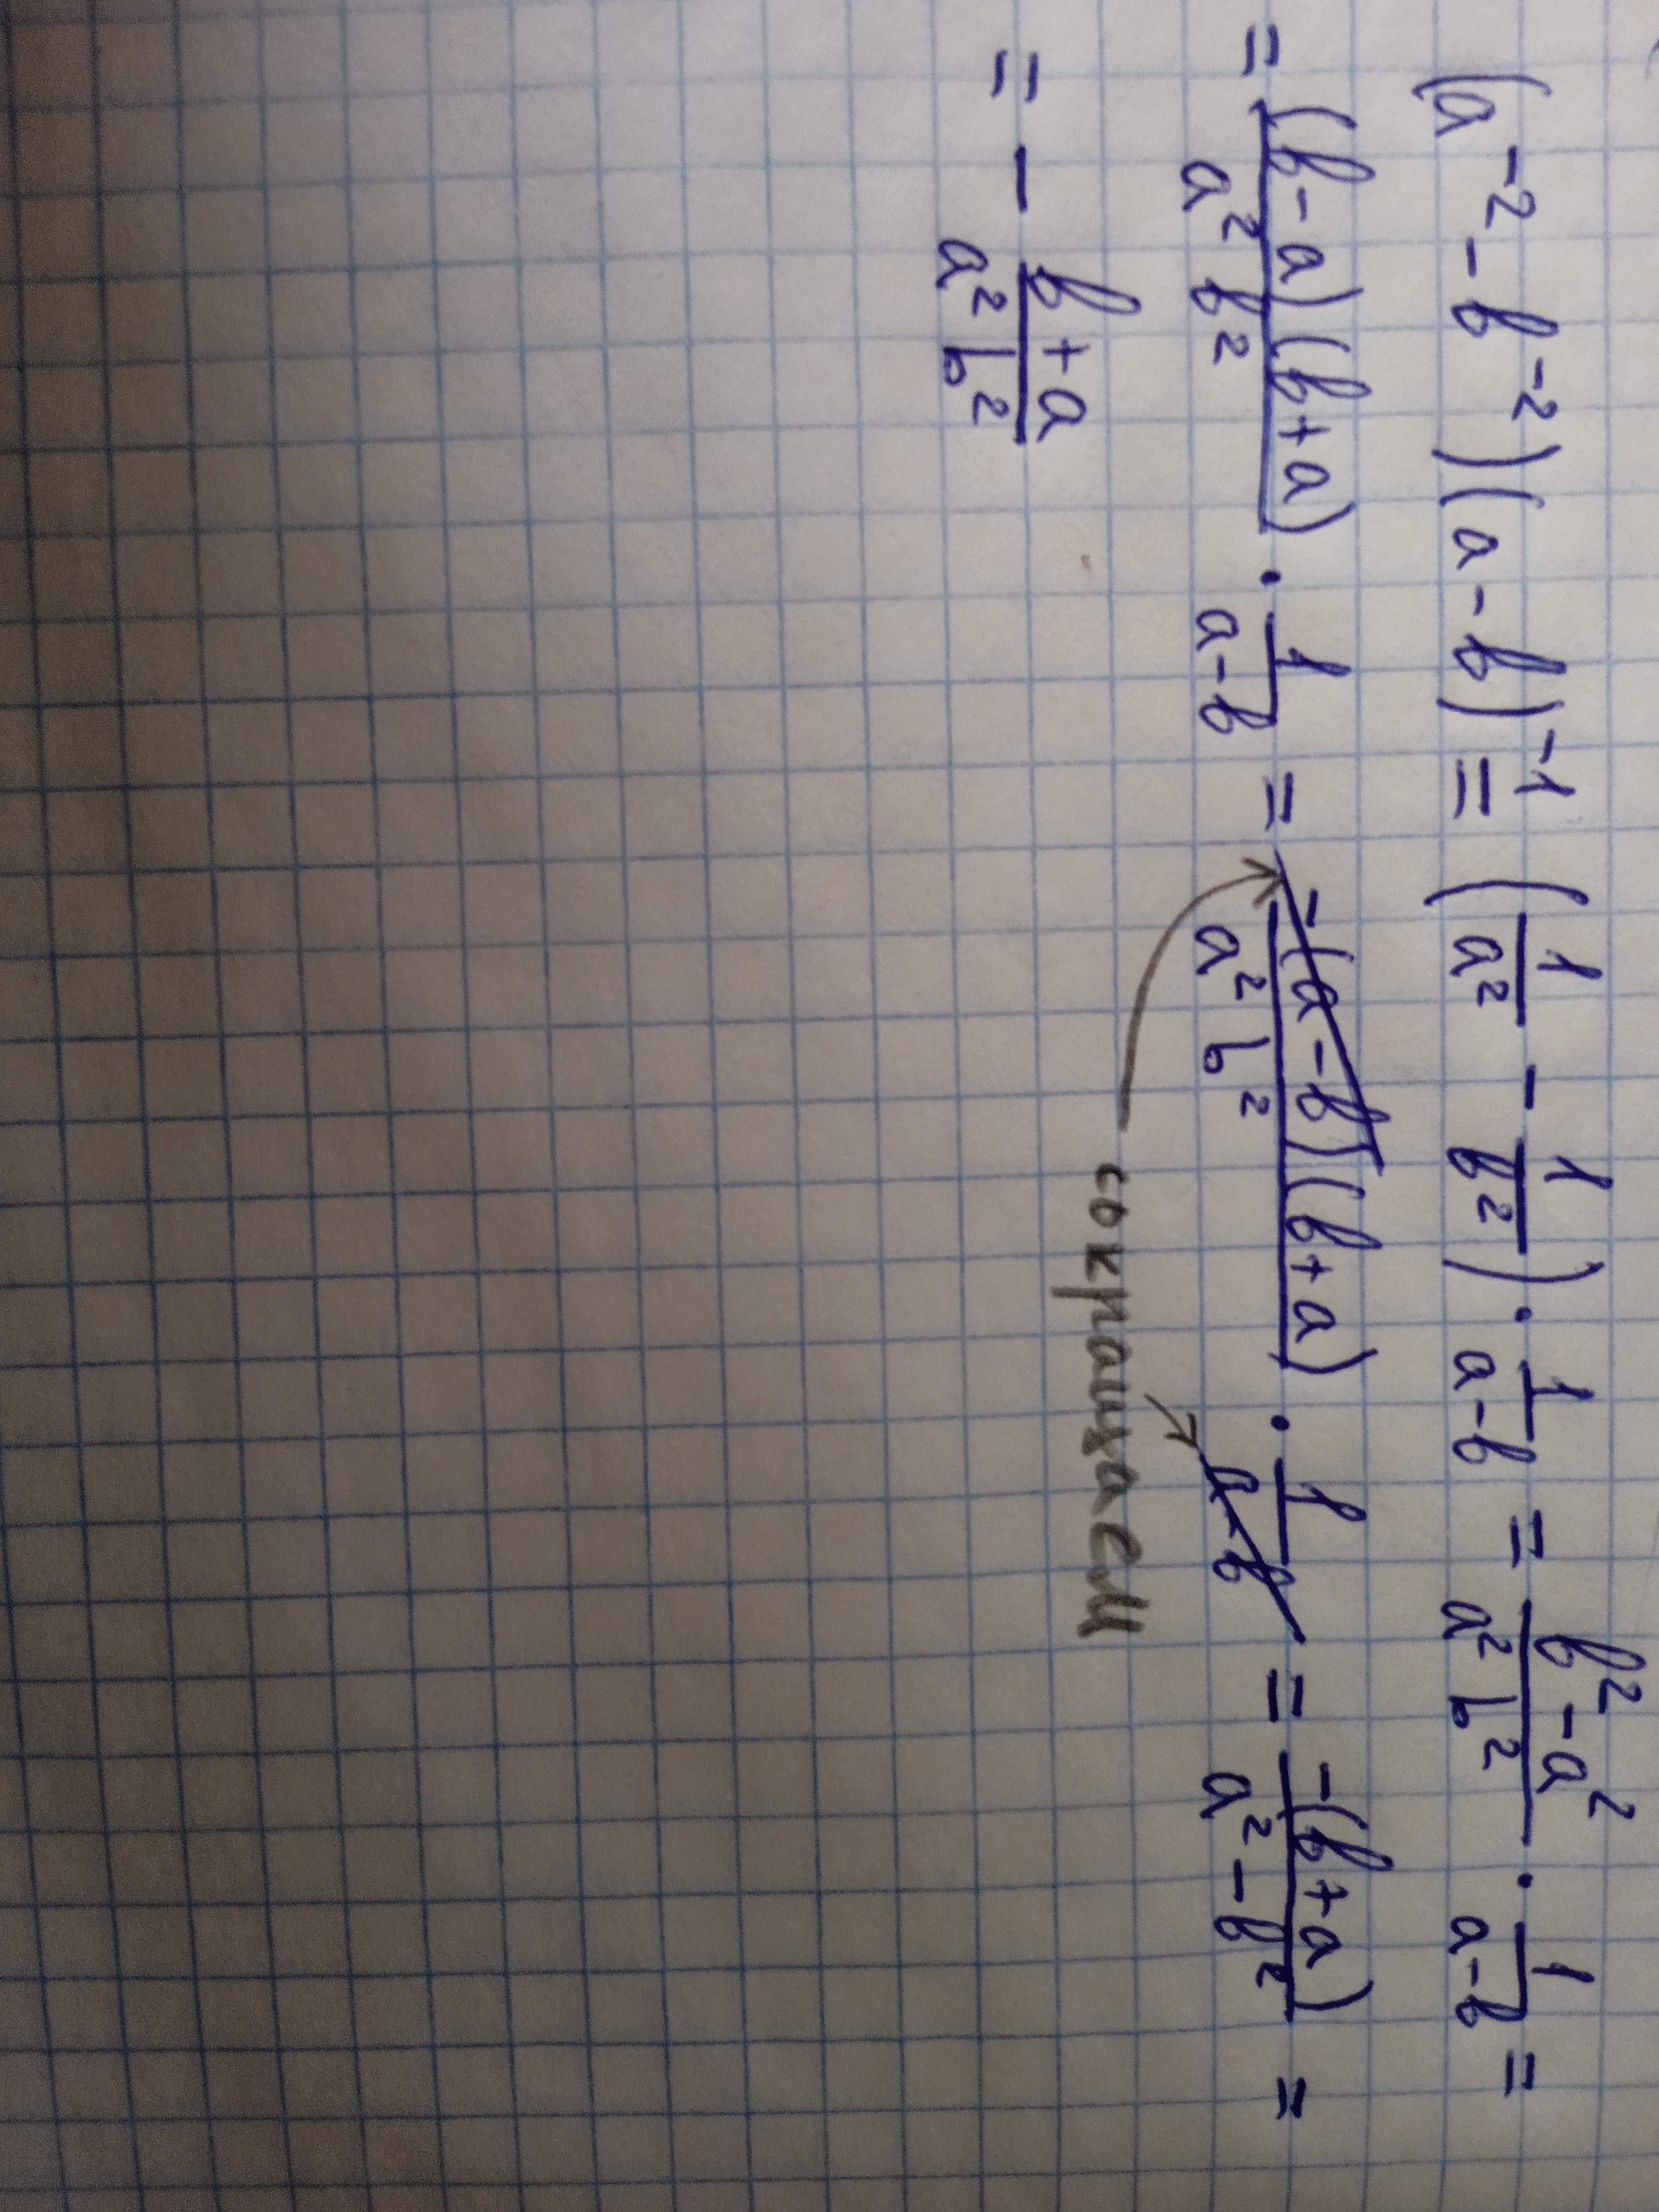 (a⁻² - b⁻²)(a - b)⁻¹ = (1/a² - 1/b²) · 1/(a-b) = (b² - a²)/(a² b²) · 1/(a-b) =
= (b-a)(b+a)/(a² b²) · 1/(a-b) = -(a-b)(b+a)/(a² b²) · 1/(a-b) = -(b+a)/(a² - b²) =
сокращаем
= - (b+a)/(a² b²)